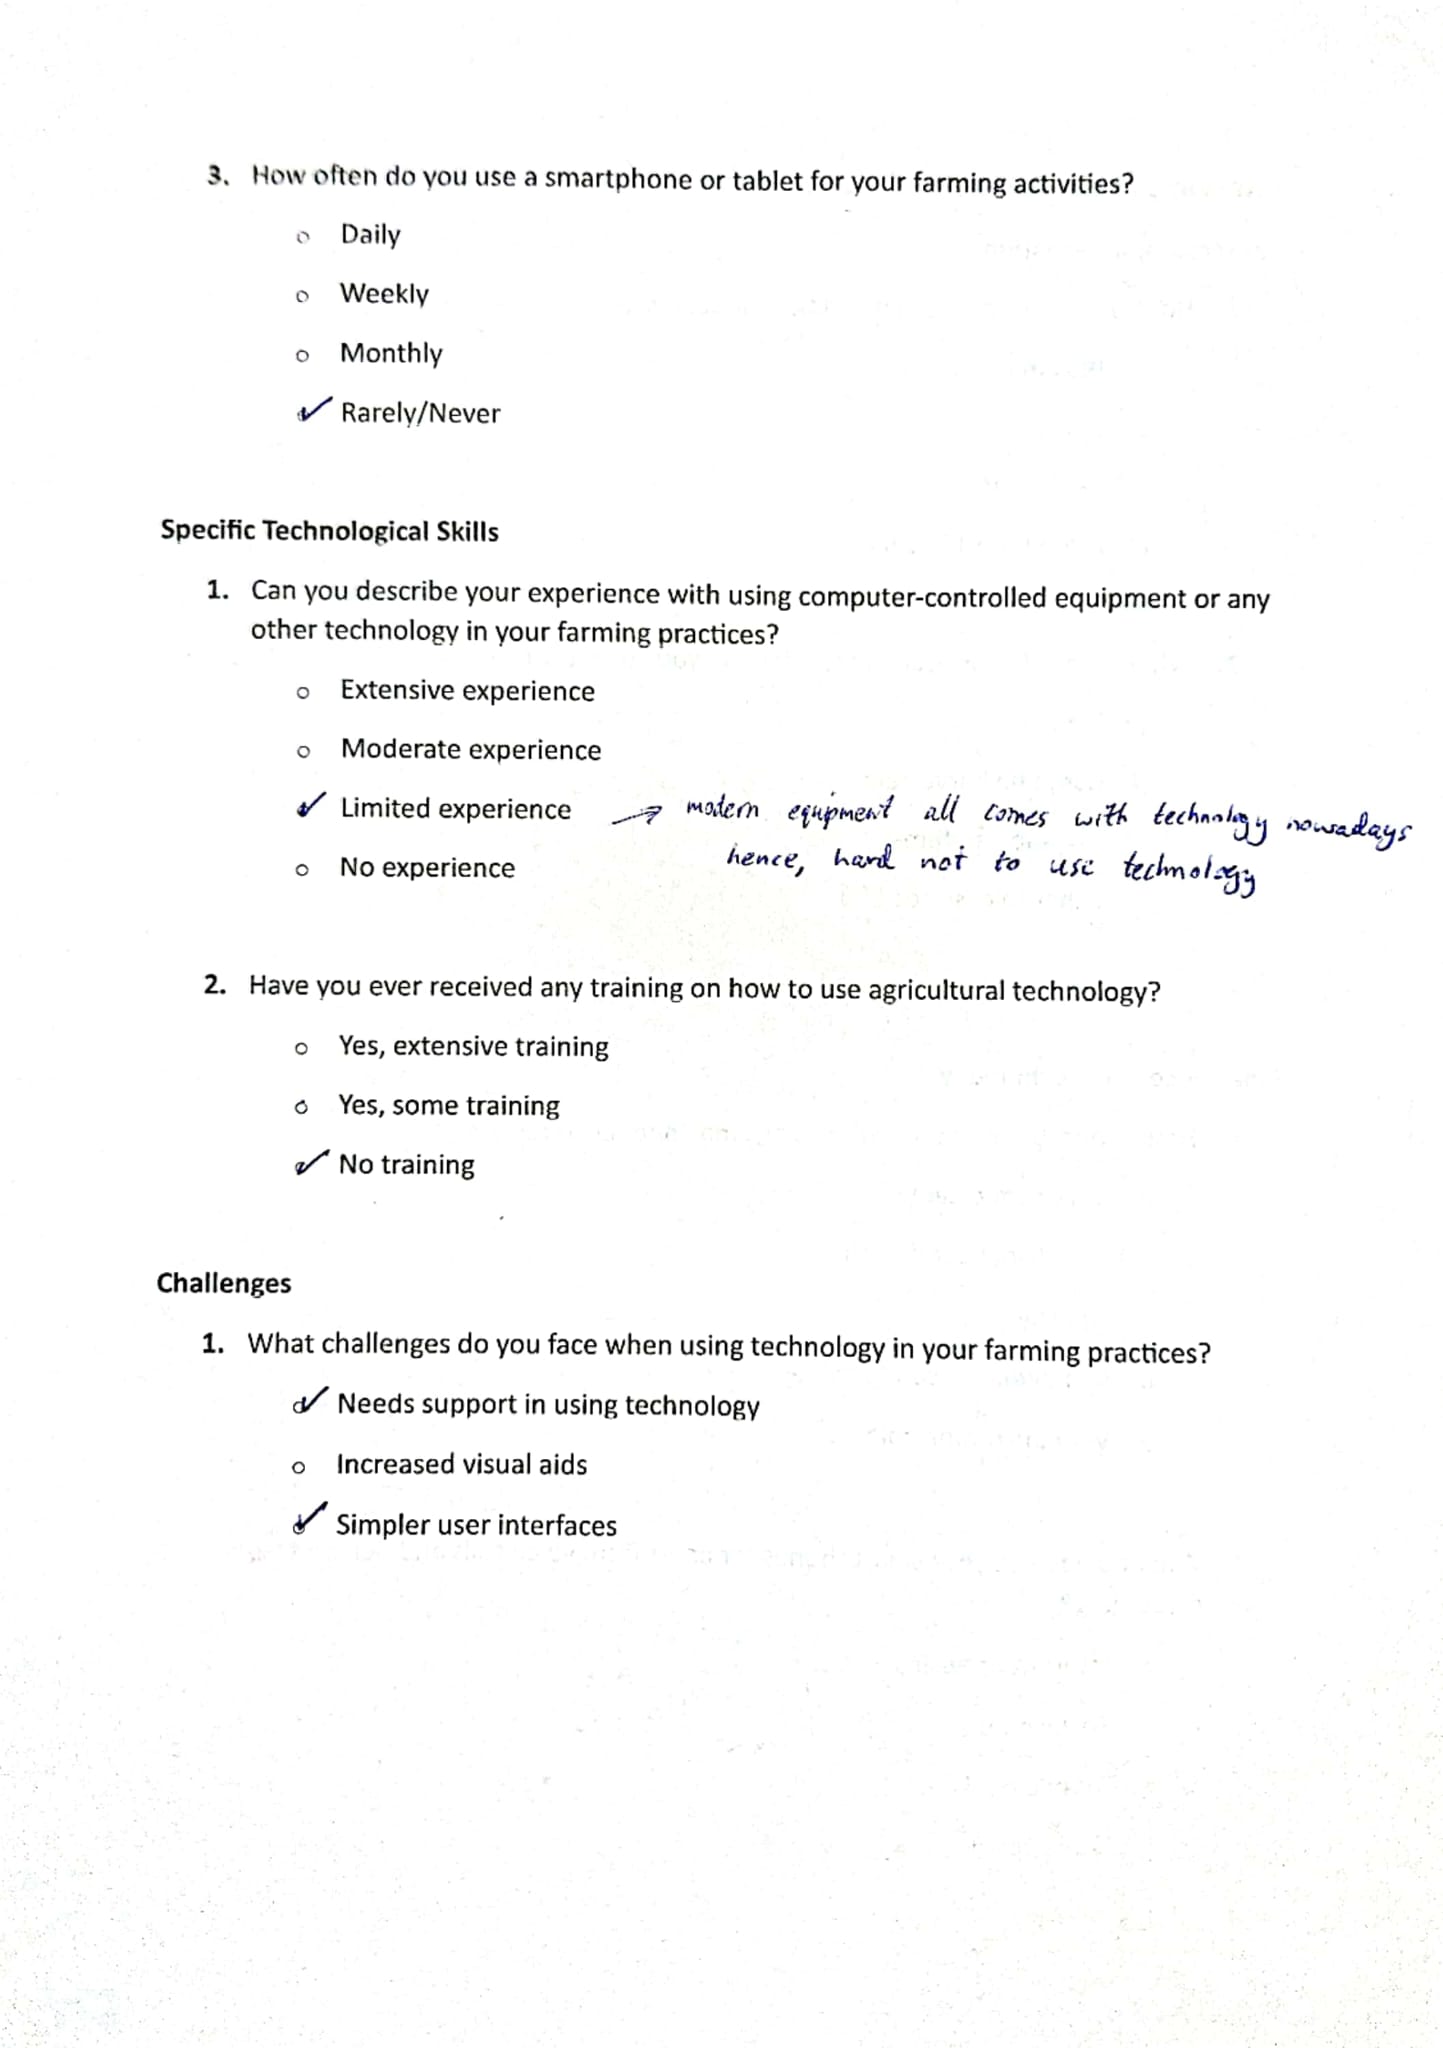 3. How often do you use a smartphone or tablet for your farming activities?
o Daily
o Weekly
o Monthly
✓ Rarely/Never
Specific Technological Skills
1. Can you describe your experience with using computer-controlled equipment or any
other technology in your farming practices?
o Extensive experience
o Moderate experience
✓ Limited experience → modern equipment all comes with technology nowadays
hence, hard not to use technology
o No experience
2. Have you ever received any training on how to use agricultural technology?
o Yes, extensive training
o Yes, some training
✓ No training
Challenges
1. What challenges do you face when using technology in your farming practices?
✓ Needs support in using technology
o Increased visual aids
✓ Simpler user interfaces